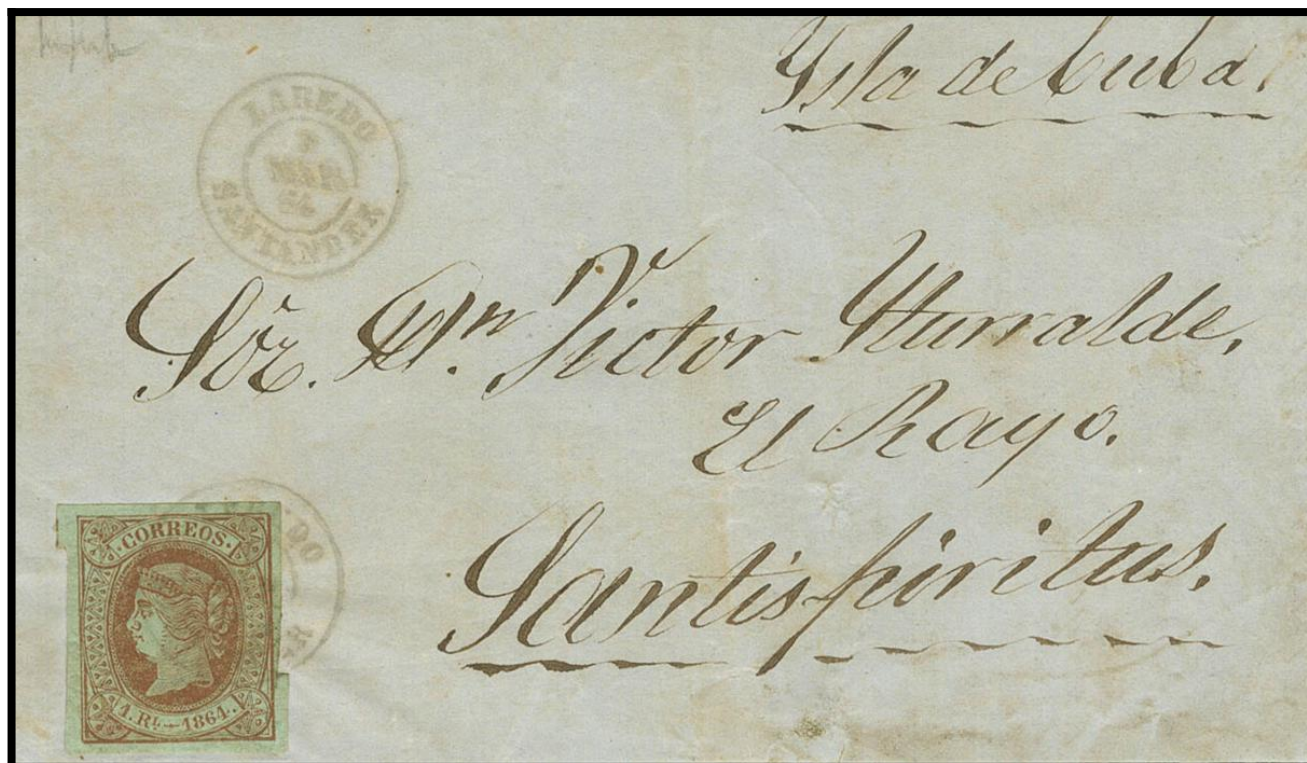 Ysla de Cuba.
LAREDO
SANTANDER
Sör. Dn. Victor Yturralde,
El Rayo.
Santispiritus.
DO
R
CORREOS.
1. Rl. - 1864.